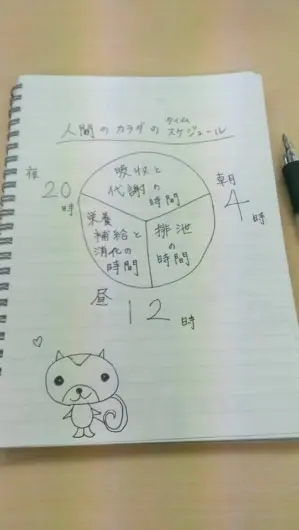 人間のカラダのタイムスケジュール
吸収と
代謝の
時間
夜
20時
朝
4時
栄養
補給と
消化の
時間
排泄
の
時間
昼
12時